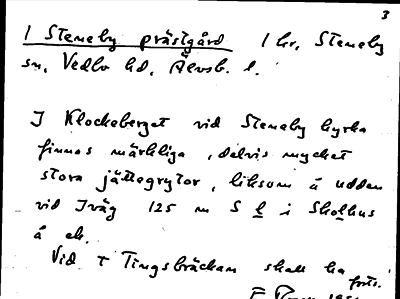 3
1 Steneby prästgård 1 hr, Steneby
sn, Vedbo hd, Älvsb. l.
I Klockeberget vid Steneby kyrka
finnas märkliga, delvis mycket
stora jättegrytor, liksom å udden
vid Iväg 125 m S
å ek.
Vid Tingsbäcken skall ha
forts.